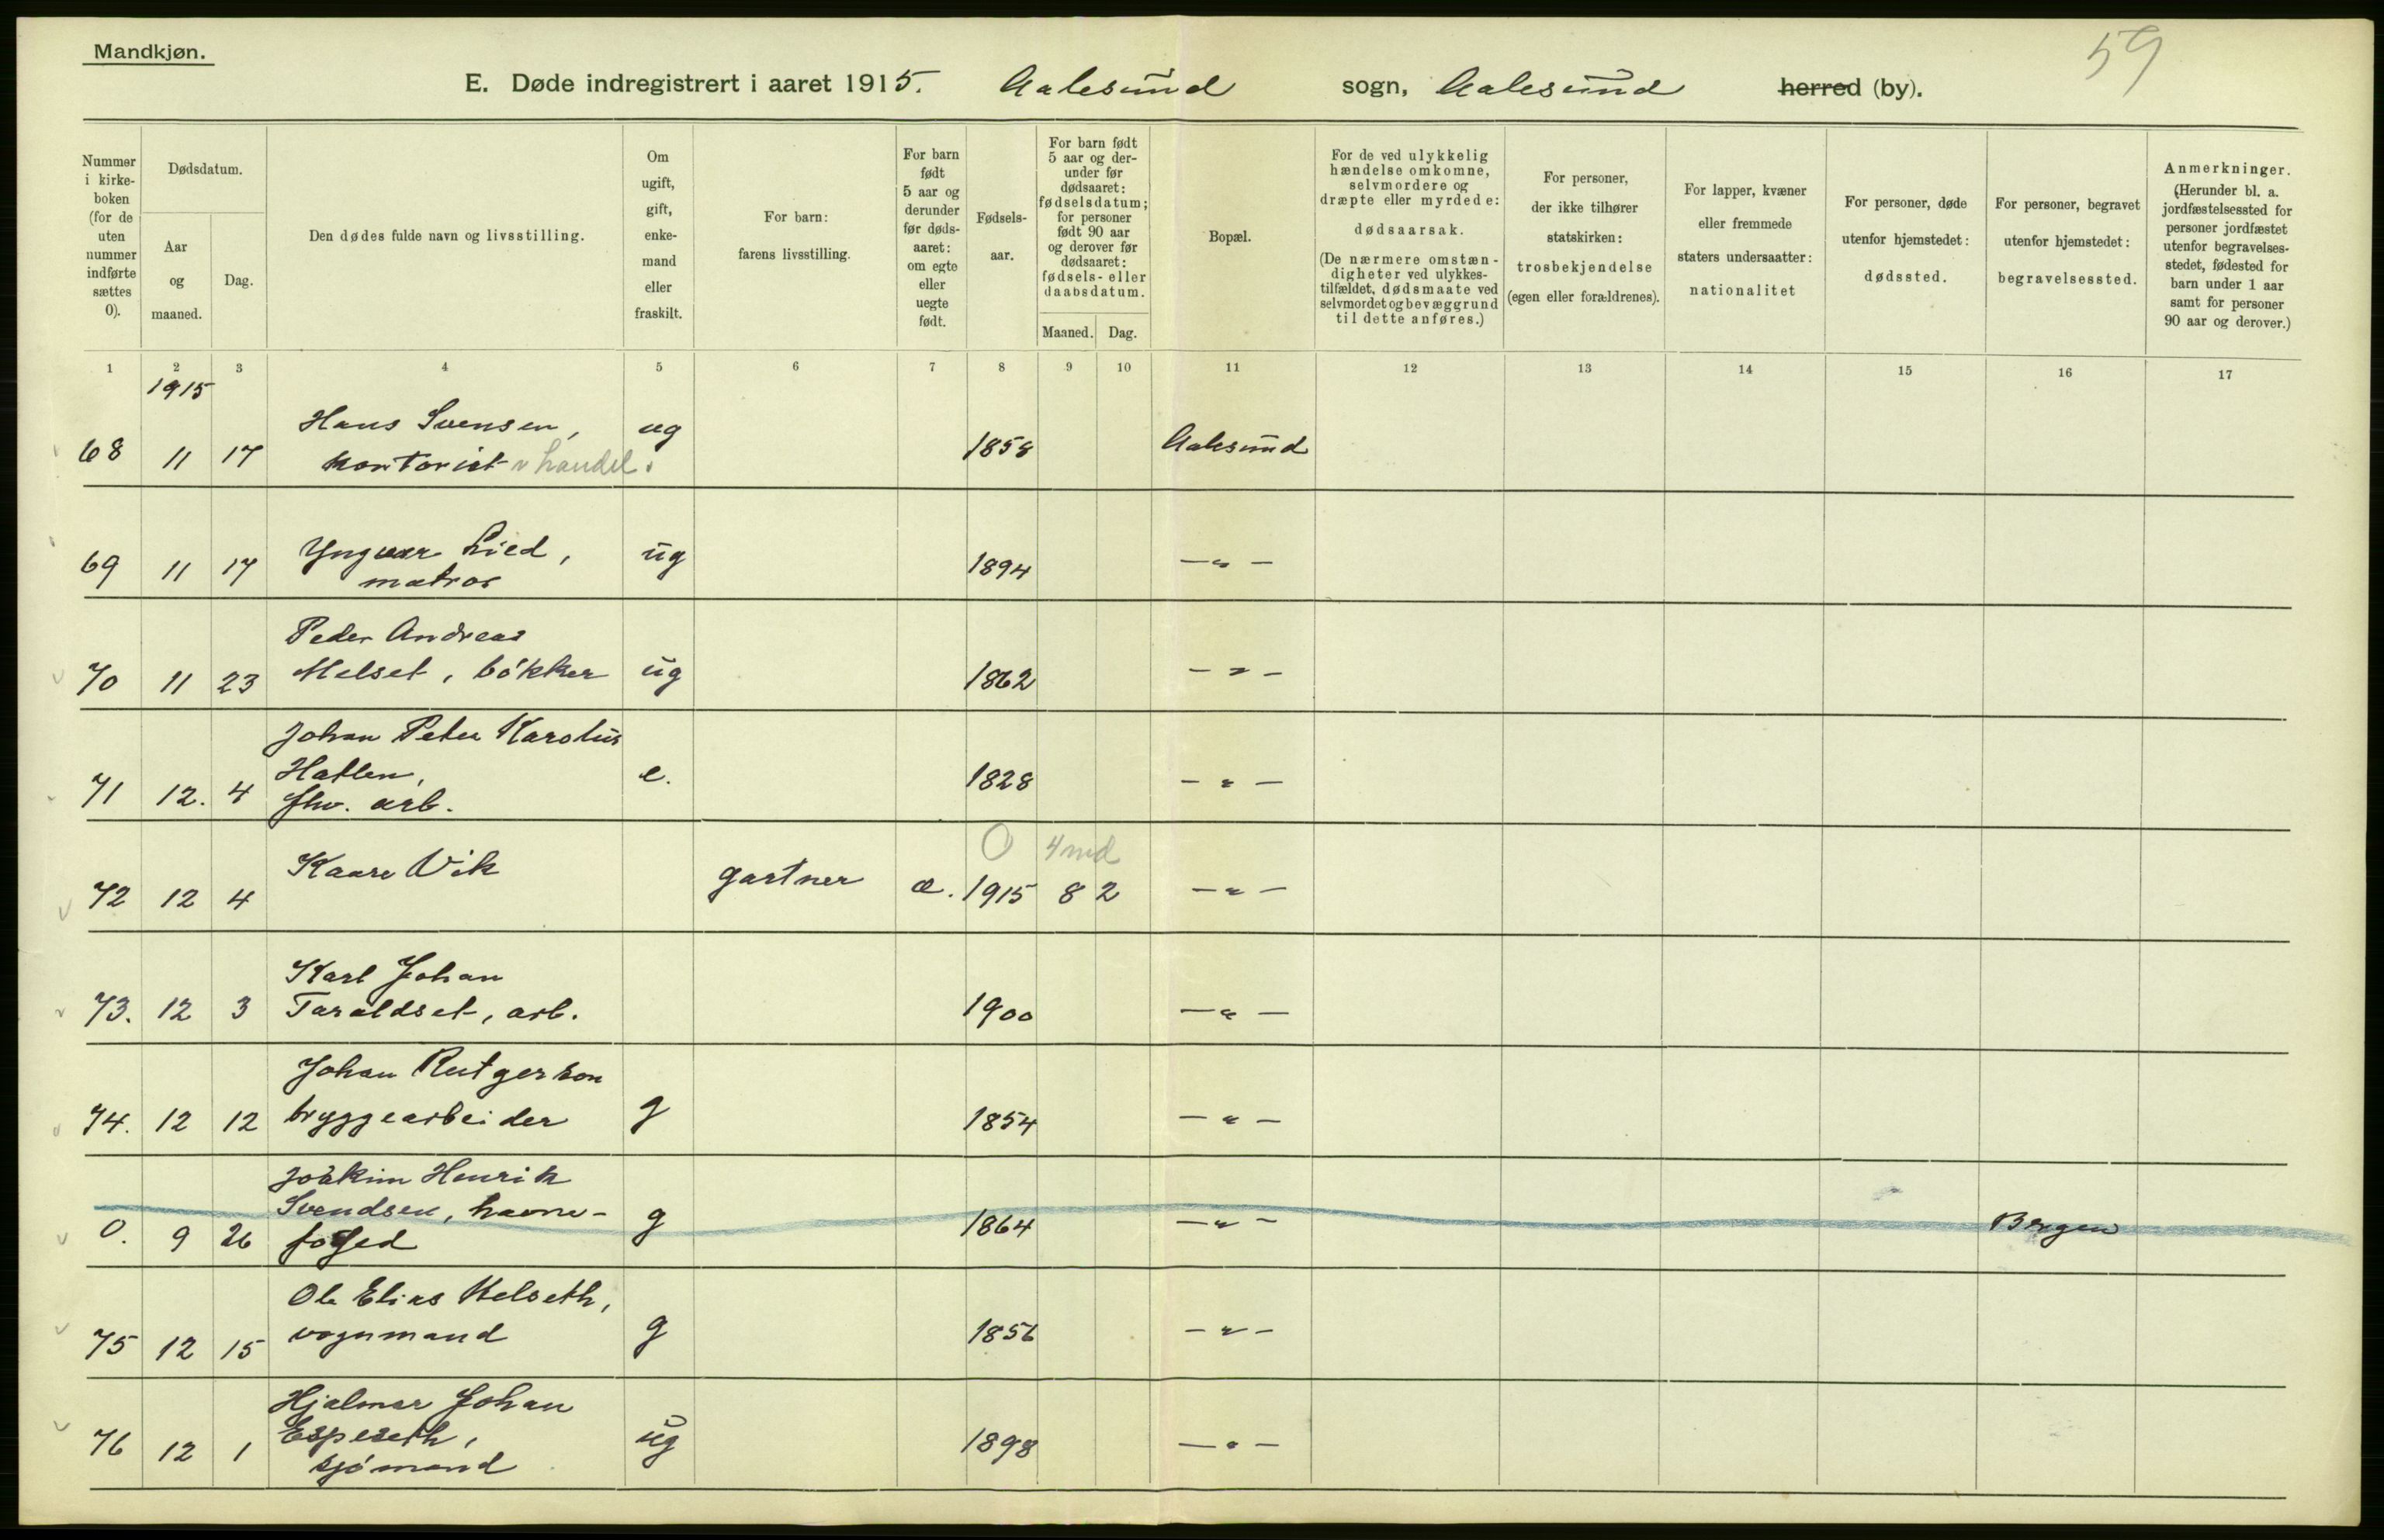 Mandkjøn.
59
E. Døde indregistrert i aaret 1915. Aalesund sogn, Aalesund herred (by).
Nummer i kirke-boken (for de uten nummer indførte sættes 0).
Dødsdatum.
Aar og maaned.
Dag.
Den dødes fulde navn og livsstilling.
Om ugift, gift, enke-mand eller fraskilt.
For barn: farens livsstilling.
For barn født 5 aar og derunder før døds-aaret: om egte eller uegte født.
Fødsels-aar.
For barn født 5 aar og der-under før dødsaaret: fødselsdatum; for personer født 90 aar og derover før dødsaaret: fødsels- eller daabsdatum.
Maaned. Dag.
Bopæl.
For de ved ulykkelig hændelse omkomne, selvmordere og dræpte eller myrdede: dødsaarsak. (De nærmere omstæn-digheter ved ulykkes-tilfældet, dødsmaate ved selvmordet og bevæggrund til dette anføres.)
For personer, der ikke tilhører statskirken: trosbekjendelse (egen eller forældrenes).
For lapper, kvæner eller fremmede staters undersaatter: nationalitet
For personer, døde utenfor hjemstedet: dødssted.
For personer, begravet utenfor hjemstedet: begravelsessted.
Anmerkninger. (Herunder bl. a. jordfæstelsessted for personer jordfæstet utenfor begravelses-stedet, fødested for barn under 1 aar samt for personer 90 aar og derover.)
1 2 3 4 5 6 7 8 9 10 11 12 13 14 15 16 17
1915
Hans Svensen, ug
68 11 17 kontorist v handel. 1858 Aalesund
69 11 17 Yngvar Lied, ug 1894 — " —
matros
Peder Andreas
70 11 23 Melset, bøkker ug 1862 — " —
Johan Peter Karolus
71 12. 4 Hatlen, e. 1828 — " —
fhv. arb.
0 4 md
72 12 4 Kaare Vik gartner æ. 1915 8 2 — " —
Karl Johan
73. 12 3 Taraldset, arb. 1900 — " —
Johan Rutgerson
74. 12 12 bryggearbeider g 1854 — " —
Joakim Henrik
Svendsen, havne-
0. 9 26 foged g 1864 — " — Bergen
Ole Elias Melseth,
75 12 15 vognmand g 1856 — " —
Hjalmar Johan
76 12 1 Espeseth, ug 1898 — " —
sjømand